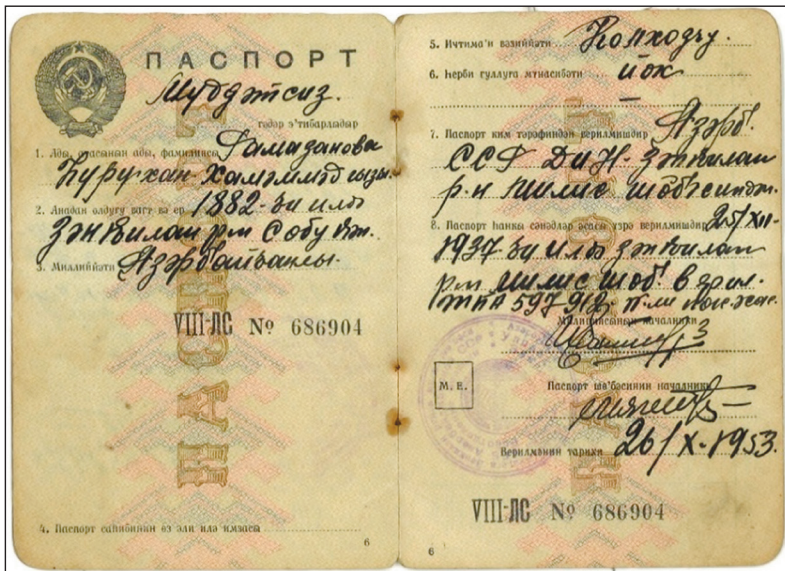 ПАСПОРТ
Мүддәтсиз.
гәдәр э'тибарлыдыр
1. Ады, атасынын ады, фамилиясы Рамазанова
Һурухан Хамәммәд гызы.
2. Анадан олдуғу вахт вә ер 1882-ҹи илдә
Зәнҝилан р-ни Собу к.
3. Миллиййәти Азәрбайҹанлы.
VIII-ЛС № 686904
4. Паспорт саһибинин өз әли илә имзасы
6
5. Иҹтима'и вәзиййәти Колхозчу.
6. Һәрби гуллуға мүнасибәти йох
7. Паспорт ким тәрәфиндән верилмишдир Азәрб.
ССР ДИН. Зәнҝилан
р-н милис шө'бәсиндән.
8. Паспорт һанкы сәнәдләр әсасы үзрә верилмишдир 25/XII-
1937-ҹи илдә Зәнҝилан
р-ни милис шөб. верил.
№ 597912
Милис идарәсинин началники
М. Е.
Паспорт шө'бәсинин началники
Верилмәнин тарихи 26/X-1953.
VIII-ЛС № 686904
6